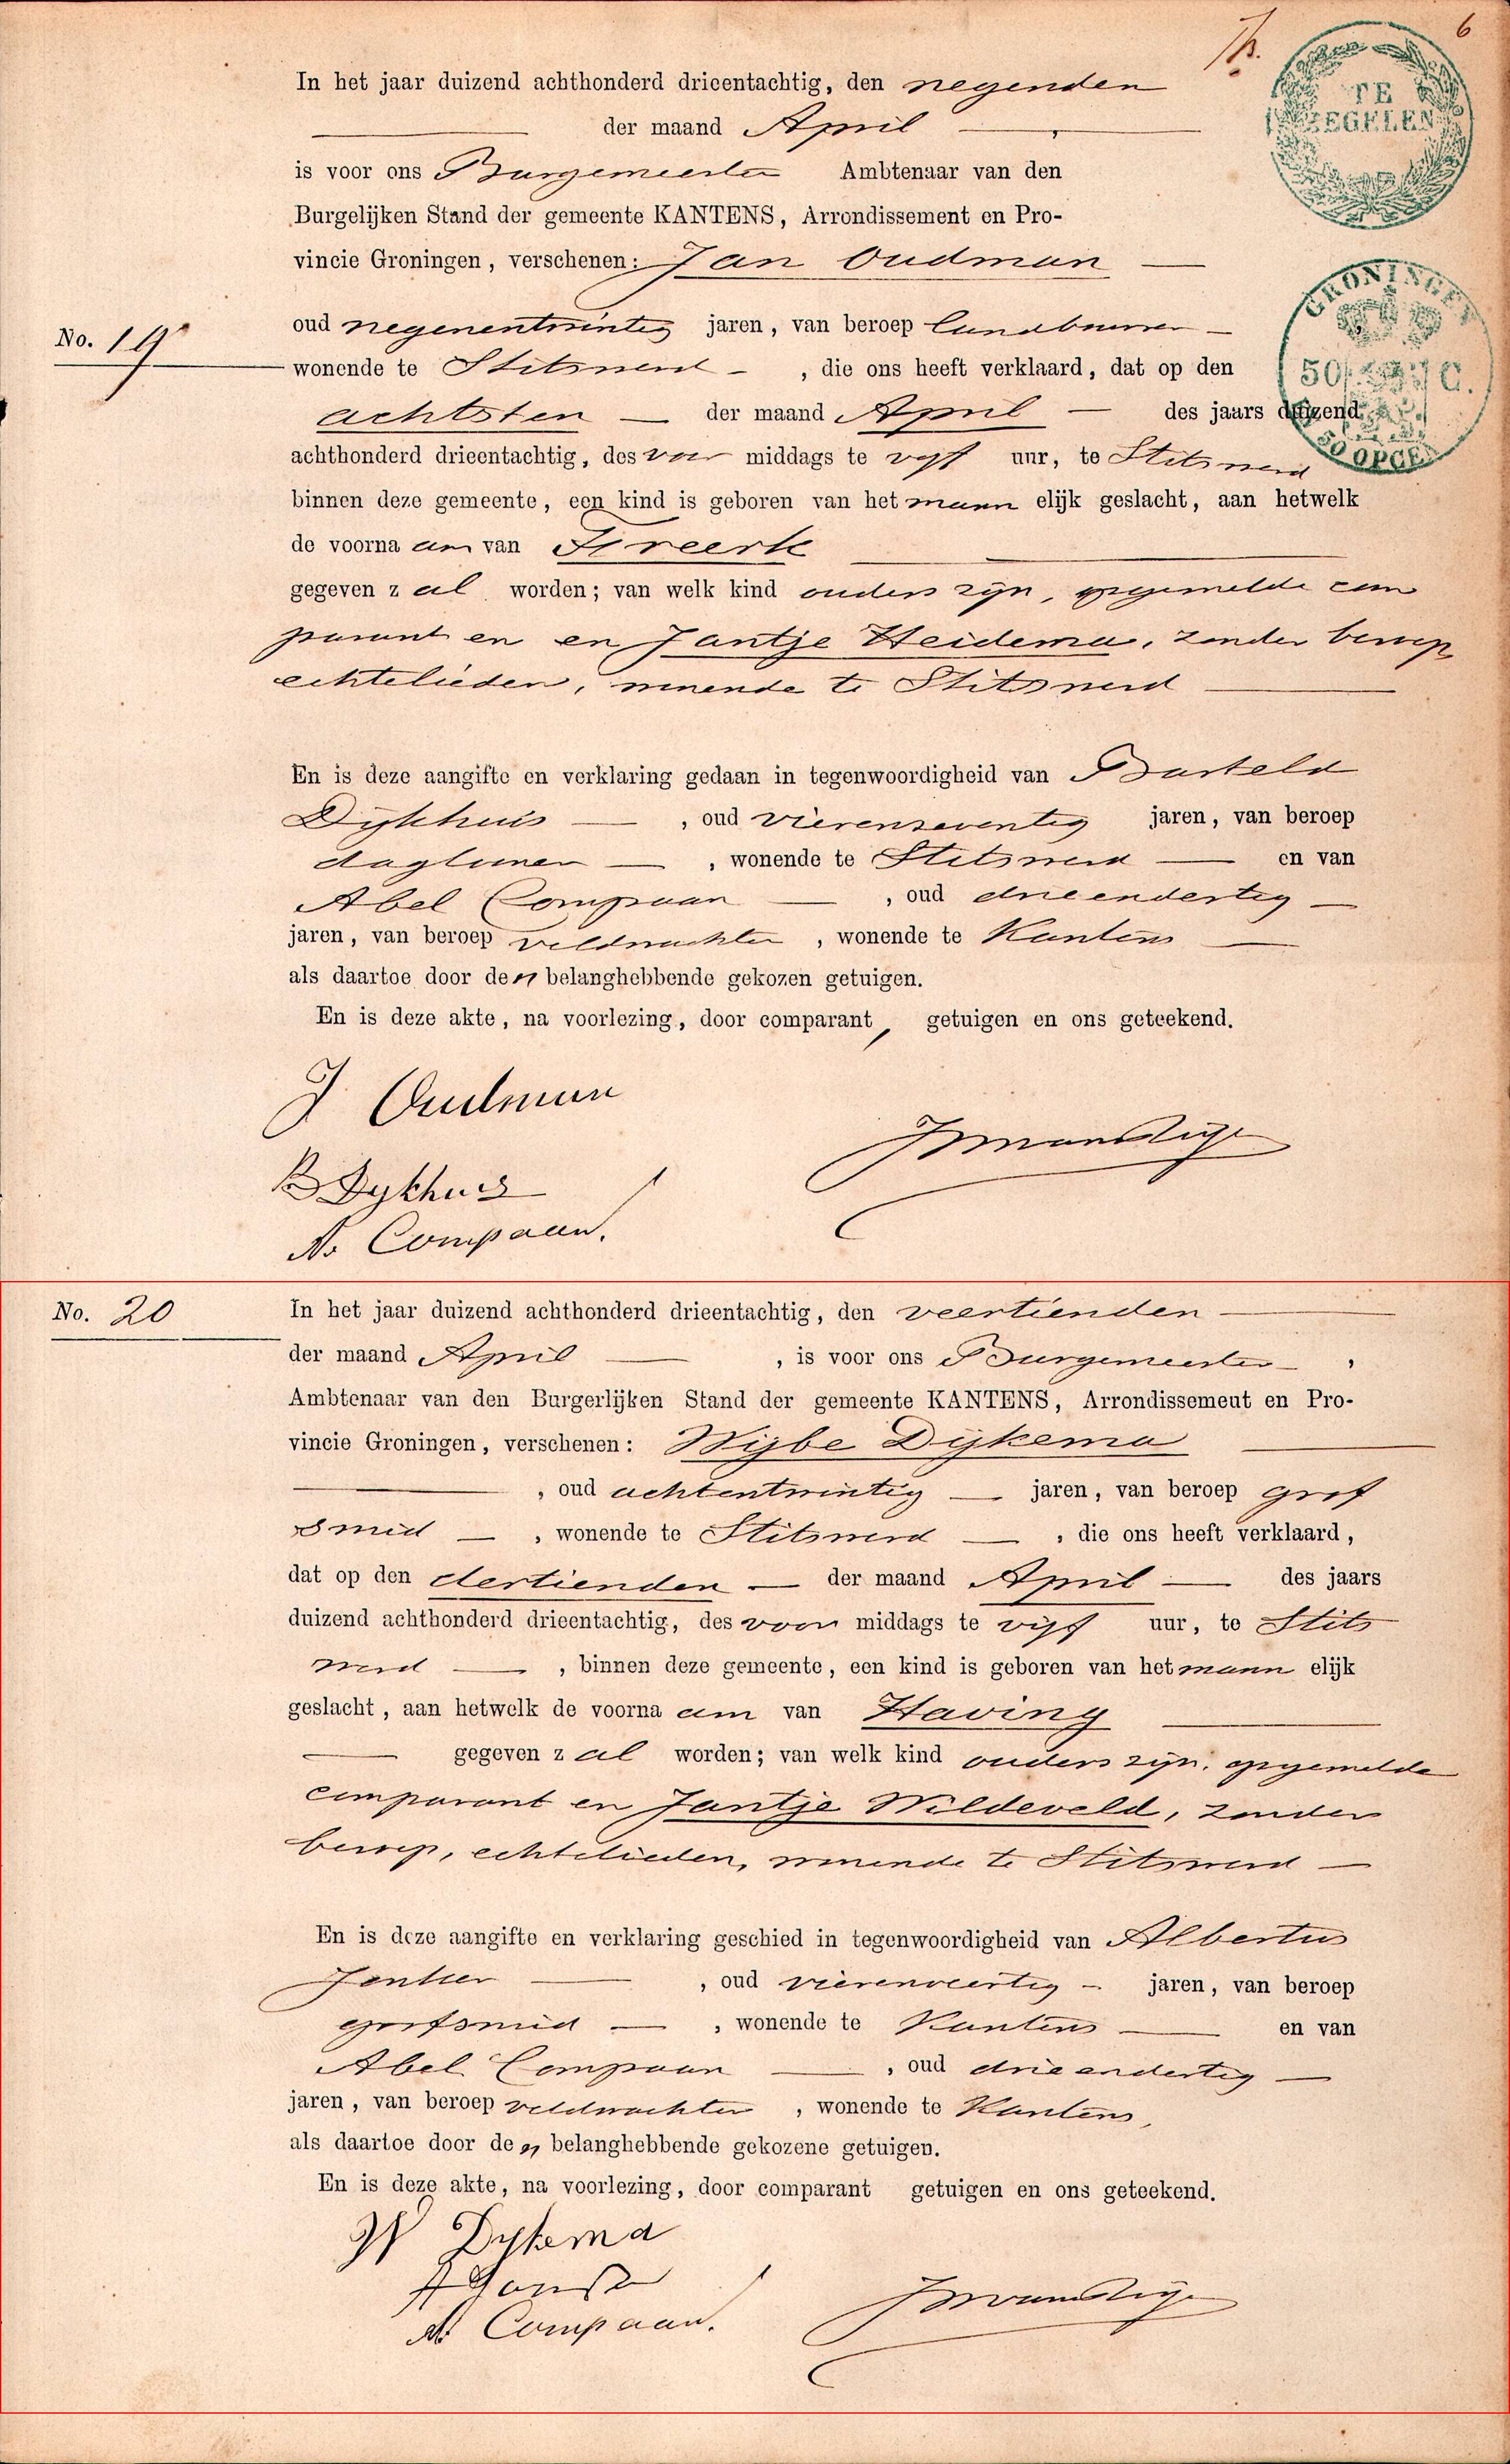 6
In het jaar duizend achthonderd drieentachtig, den negenden
der maand April
is voor ons Burgemeester Ambtenaar van den
Burgelijken Stand der gemeente KANTENS, Arrondissement en Pro-
vincie Groningen, verschenen: Jan Oudman
No. 19
oud negenentwintig jaren, van beroep landbouwer
wonende te Stitswerd, die ons heeft verklaard, dat op den
achtsten der maand April des jaars duizend
achthonderd drieentachtig, des voor middags te vijf uur, te Stitswerd
binnen deze gemeente, een kind is geboren van het mann elijk geslacht, aan hetwelk
de voorna am van
gegeven z al worden; van welk kind ouders zijn, opgemelde com
parant en en Jantje Heidema, zonder beroep,
echtelieden, wonende te Stitswerd
En is deze aangifte en verklaring gedaan in tegenwoordigheid van Barteld
Dijkhuis, oud vierenzeventig jaren, van beroep
daglooner, wonende te Stitswerd en van
Abel Compaan, oud drieendertig
jaren, van beroep veldwachter, wonende te Kantens
als daartoe door den belanghebbende gekozen getuigen.
En is deze akte, na voorlezing, door comparant, getuigen en ons geteekend.
J Oudman
B Dykhuis
A. Compaan.
TE ZEGELEN
GRONINGEN
50 C.
50 OPC
No. 20
In het jaar duizend achthonderd drieentachtig, den veertienden
der maand April, is voor ons Burgemeester,
Ambtenaar van den Burgerlijken Stand der gemeente KANTENS, Arrondissement en Pro-
vincie Groningen, verschenen: Wijbe Dijkema
, oud achtentwintig jaren, van beroep grof
smid, wonende te Stitswerd, die ons heeft verklaard,
dat op den dertienden der maand April des jaars
duizend achthonderd drieentachtig, des voor middags te vijf uur, te Stits
werd, binnen deze gemeente, een kind is geboren van het mann elijk
geslacht, aan hetwelk de voorna am van Having
gegeven z al worden; van welk kind ouders zijn: opgemelde
comparant en Jantje Wildeveld, zonder
beroep, echtelieden, wonende te Stitswerd
En is deze aangifte en verklaring geschied in tegenwoordigheid van Albertus
, oud vierenveertig jaren, van beroep
grofsmid, wonende te Kantens en van
Abel Compaan, oud drieendertig
jaren, van beroep veldwachter, wonende te Kantens,
als daartoe door den belanghebbende gekozene getuigen.
En is deze akte, na voorlezing, door comparant getuigen en ons geteekend.
W Dykema
A. Compaan.